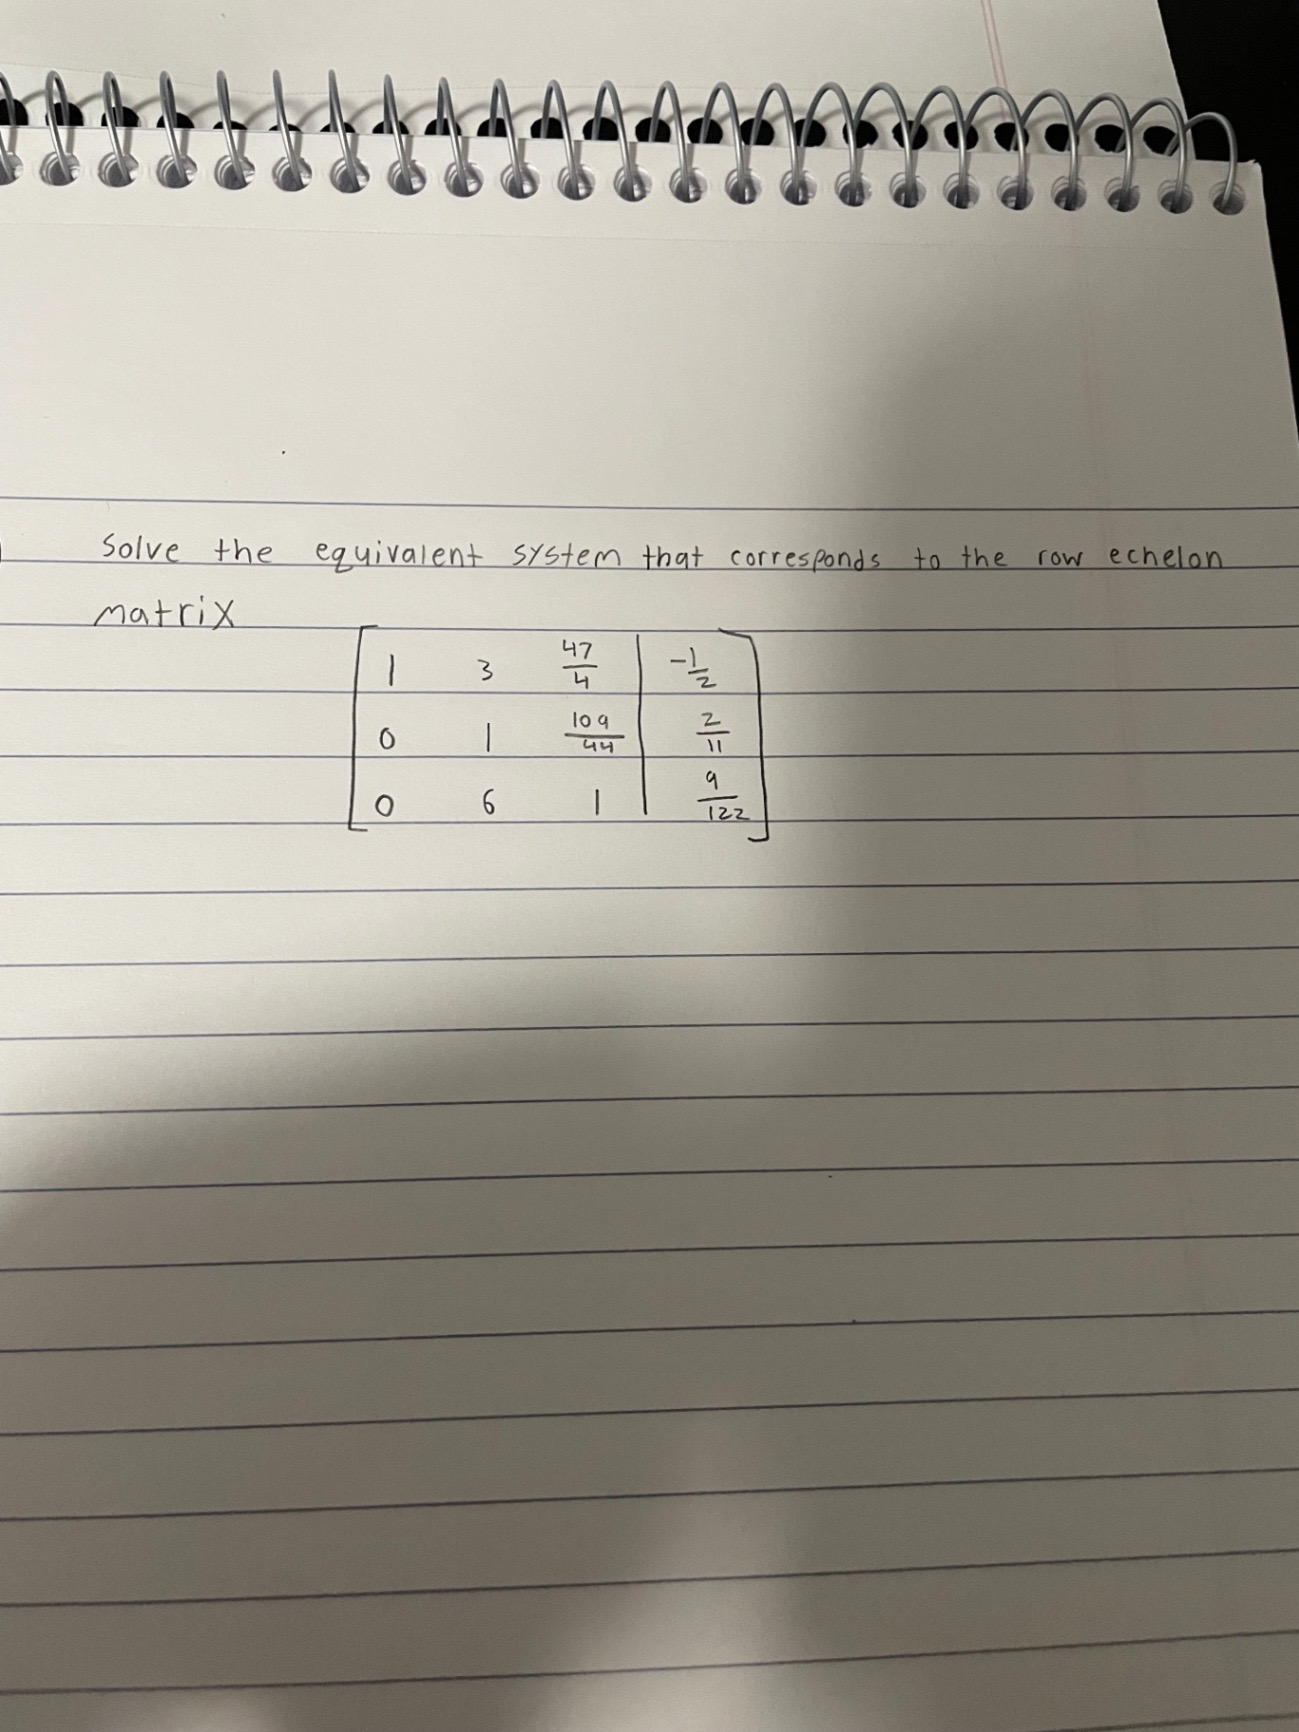 Solve the equivalent system that corresponds to the row echelon
matrix
1 3 47/4 | -1/2
0 1 109/44 | 2/11
0 6 1 | 9/122